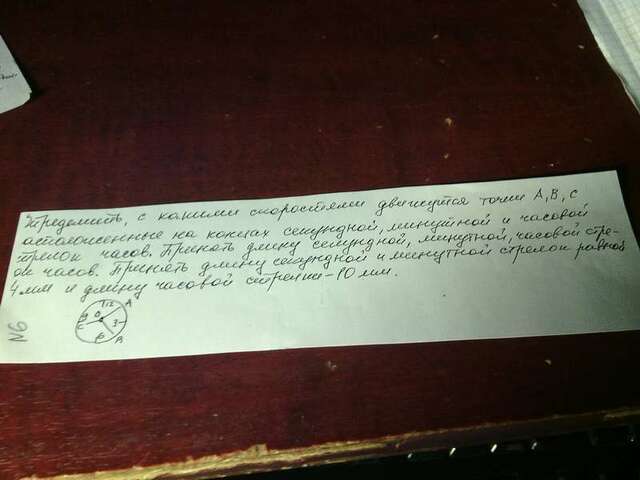 Определить, с какими скоростями движутся точки А, В, С
асположенные на концах секундной, минутной и часовой
стрелок часов. Принять длину секундной, минутной, часовой стре-
ок часов. Принять длину секундной и минутной стрелок равной
4 мм и длину часовой стрелки - 10 мм.
12 А
9 О
С 3
6 В
N6